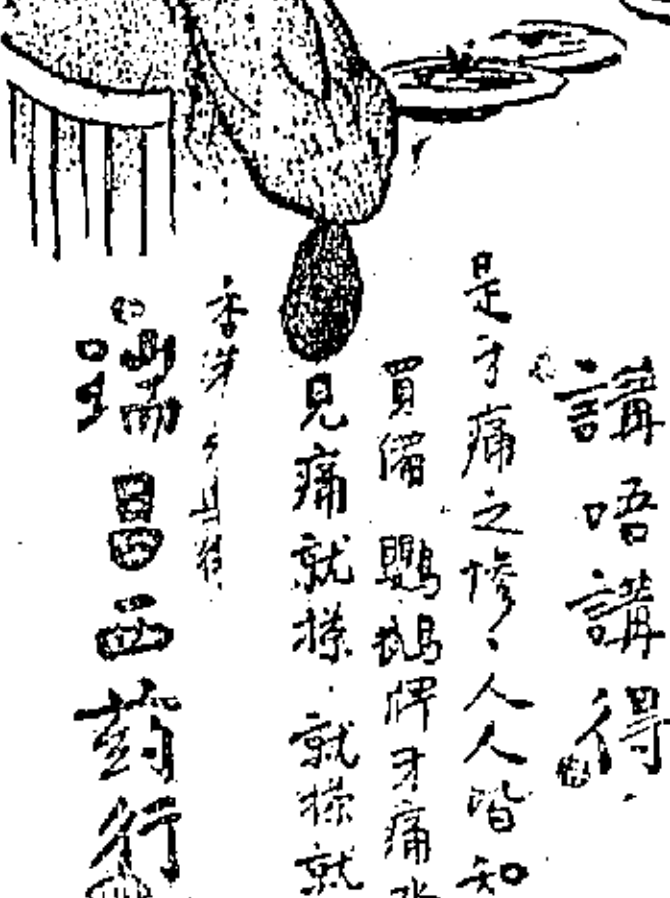 講唔講得
是牙痛之慘、人人皆知
買備鸚鵡牌牙痛水
見痛就搽・就搽就
瑞昌西药行